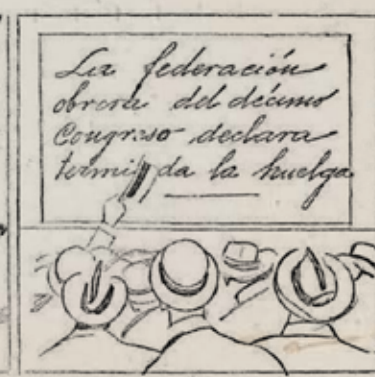 La federación
obrera del décimo
Congreso declara
termi da la huelga